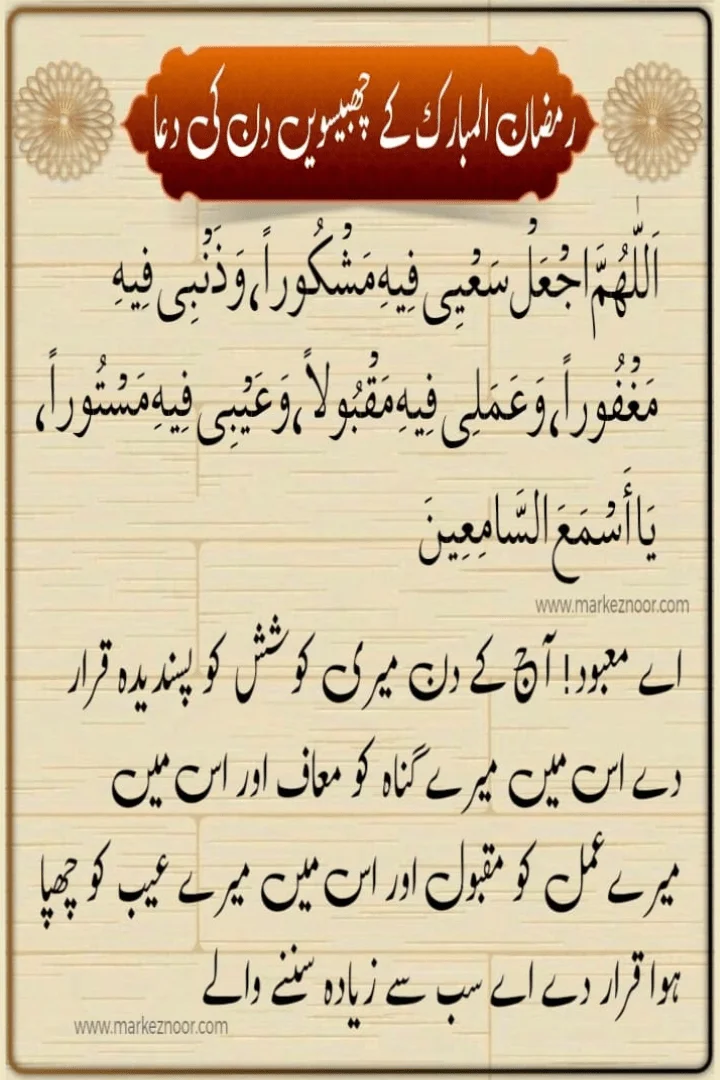 رمضان المبارک کے چھبیسویں دن کی دعا
اَللّٰهُمَّ اجْعَلْ سَعْيِي فِيهِ مَشْكُوراً، وَذَنْبِي فِيهِ
مَغْفُوراً، وَعَمَلِي فِيهِ مَقْبُولاً، وَعَيْبِي فِيهِ مَسْتُوراً،
يَا أَسْمَعَ السَّامِعِينَ
www.markeznoor.com
اے معبود! آج کے دن میری کوشش کو پسندیدہ قرار
دے اس میں میرے گناہ کو معاف اور اس میں
میرے عمل کو مقبول اور اس میں میرے عیب کو چھپا
ہوا قرار دے اے سب سے زیادہ سننے والے
www.markeznoor.com